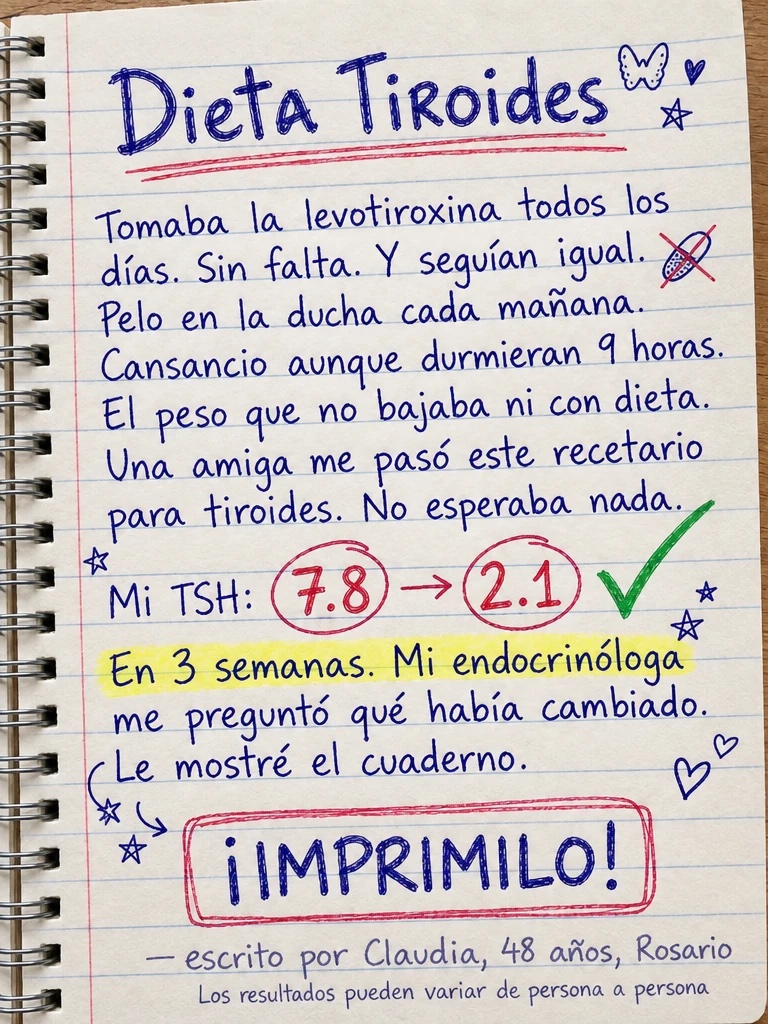 Dieta Tiroides
Tomaba la levotiroxina todos los
días. Sin falta. Y seguían igual.
Pelo en la ducha cada mañana.
Cansancio aunque durmieran 9 horas.
El peso que no bajaba ni con dieta.
Una amiga me pasó este recetario
para tiroides. No esperaba nada.
Mi TSH: 7.8 → 2.1
En 3 semanas. Mi endocrinóloga
me preguntó qué había cambiado.
Le mostré el cuaderno.
¡IMPRIMILO!
— escrito por Claudia, 48 años, Rosario
Los resultados pueden variar de persona a persona